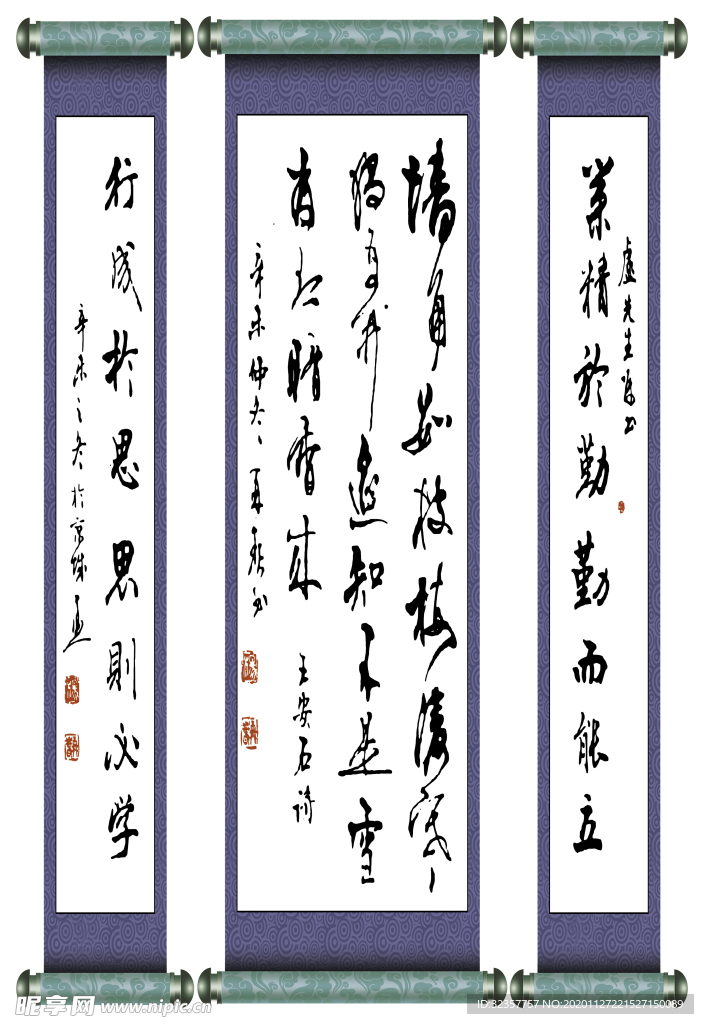 業精於勤勤而能立
先生
墙角数枝梅凌寒
獨自開遥知不是雪
暗香来
王安石詩
辛未仲冬
行成於思思則必学
辛未之冬於京城
昵享网 www.nipic.cn
ID:32357757 NO:20201127221527150089